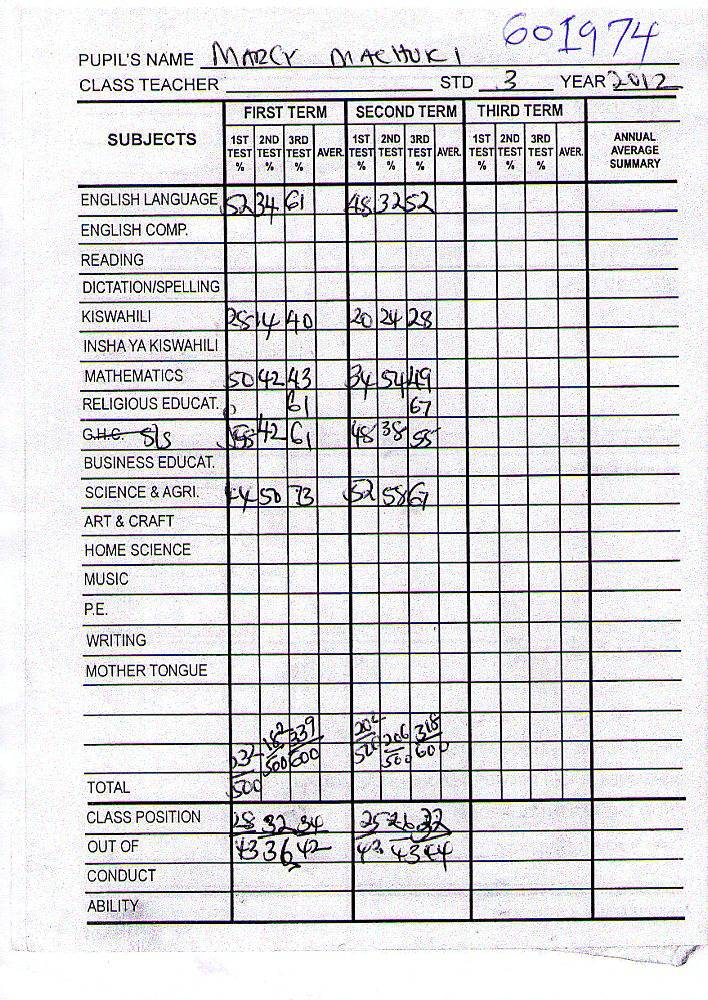 601974
PUPIL'S NAME MARCY MACHUKI
CLASS TEACHER STD 3 YEAR 2012
SUBJECTS FIRST TERM SECOND TERM THIRD TERM ANNUAL AVERAGE SUMMARY
1ST TEST % 2ND TEST % 3RD TEST % AVER. 1ST TEST % 2ND TEST % 3RD TEST % AVER. 1ST TEST % 2ND TEST % 3RD TEST % AVER.
ENGLISH LANGUAGE 52 34 61 48 32 52
ENGLISH COMP.
READING
DICTATION/SPELLING
KISWAHILI 28 14 40 20 24 28
INSHA YA KISWAHILI
MATHEMATICS 50 42 43 34 54 49
RELIGIOUS EDUCAT. 61 67
G.H.C. S/S 58 42 61 48 38 55
BUSINESS EDUCAT.
SCIENCE & AGRI. 44 50 73 52 58 67
ART & CRAFT
HOME SCIENCE
MUSIC
P.E.
WRITING
MOTHER TONGUE
182 339 202 206 318
232 500 600 500 600
TOTAL 500
CLASS POSITION 28 32 34 25 26 32
OUT OF 43 36 42 43 43 44
CONDUCT
ABILITY